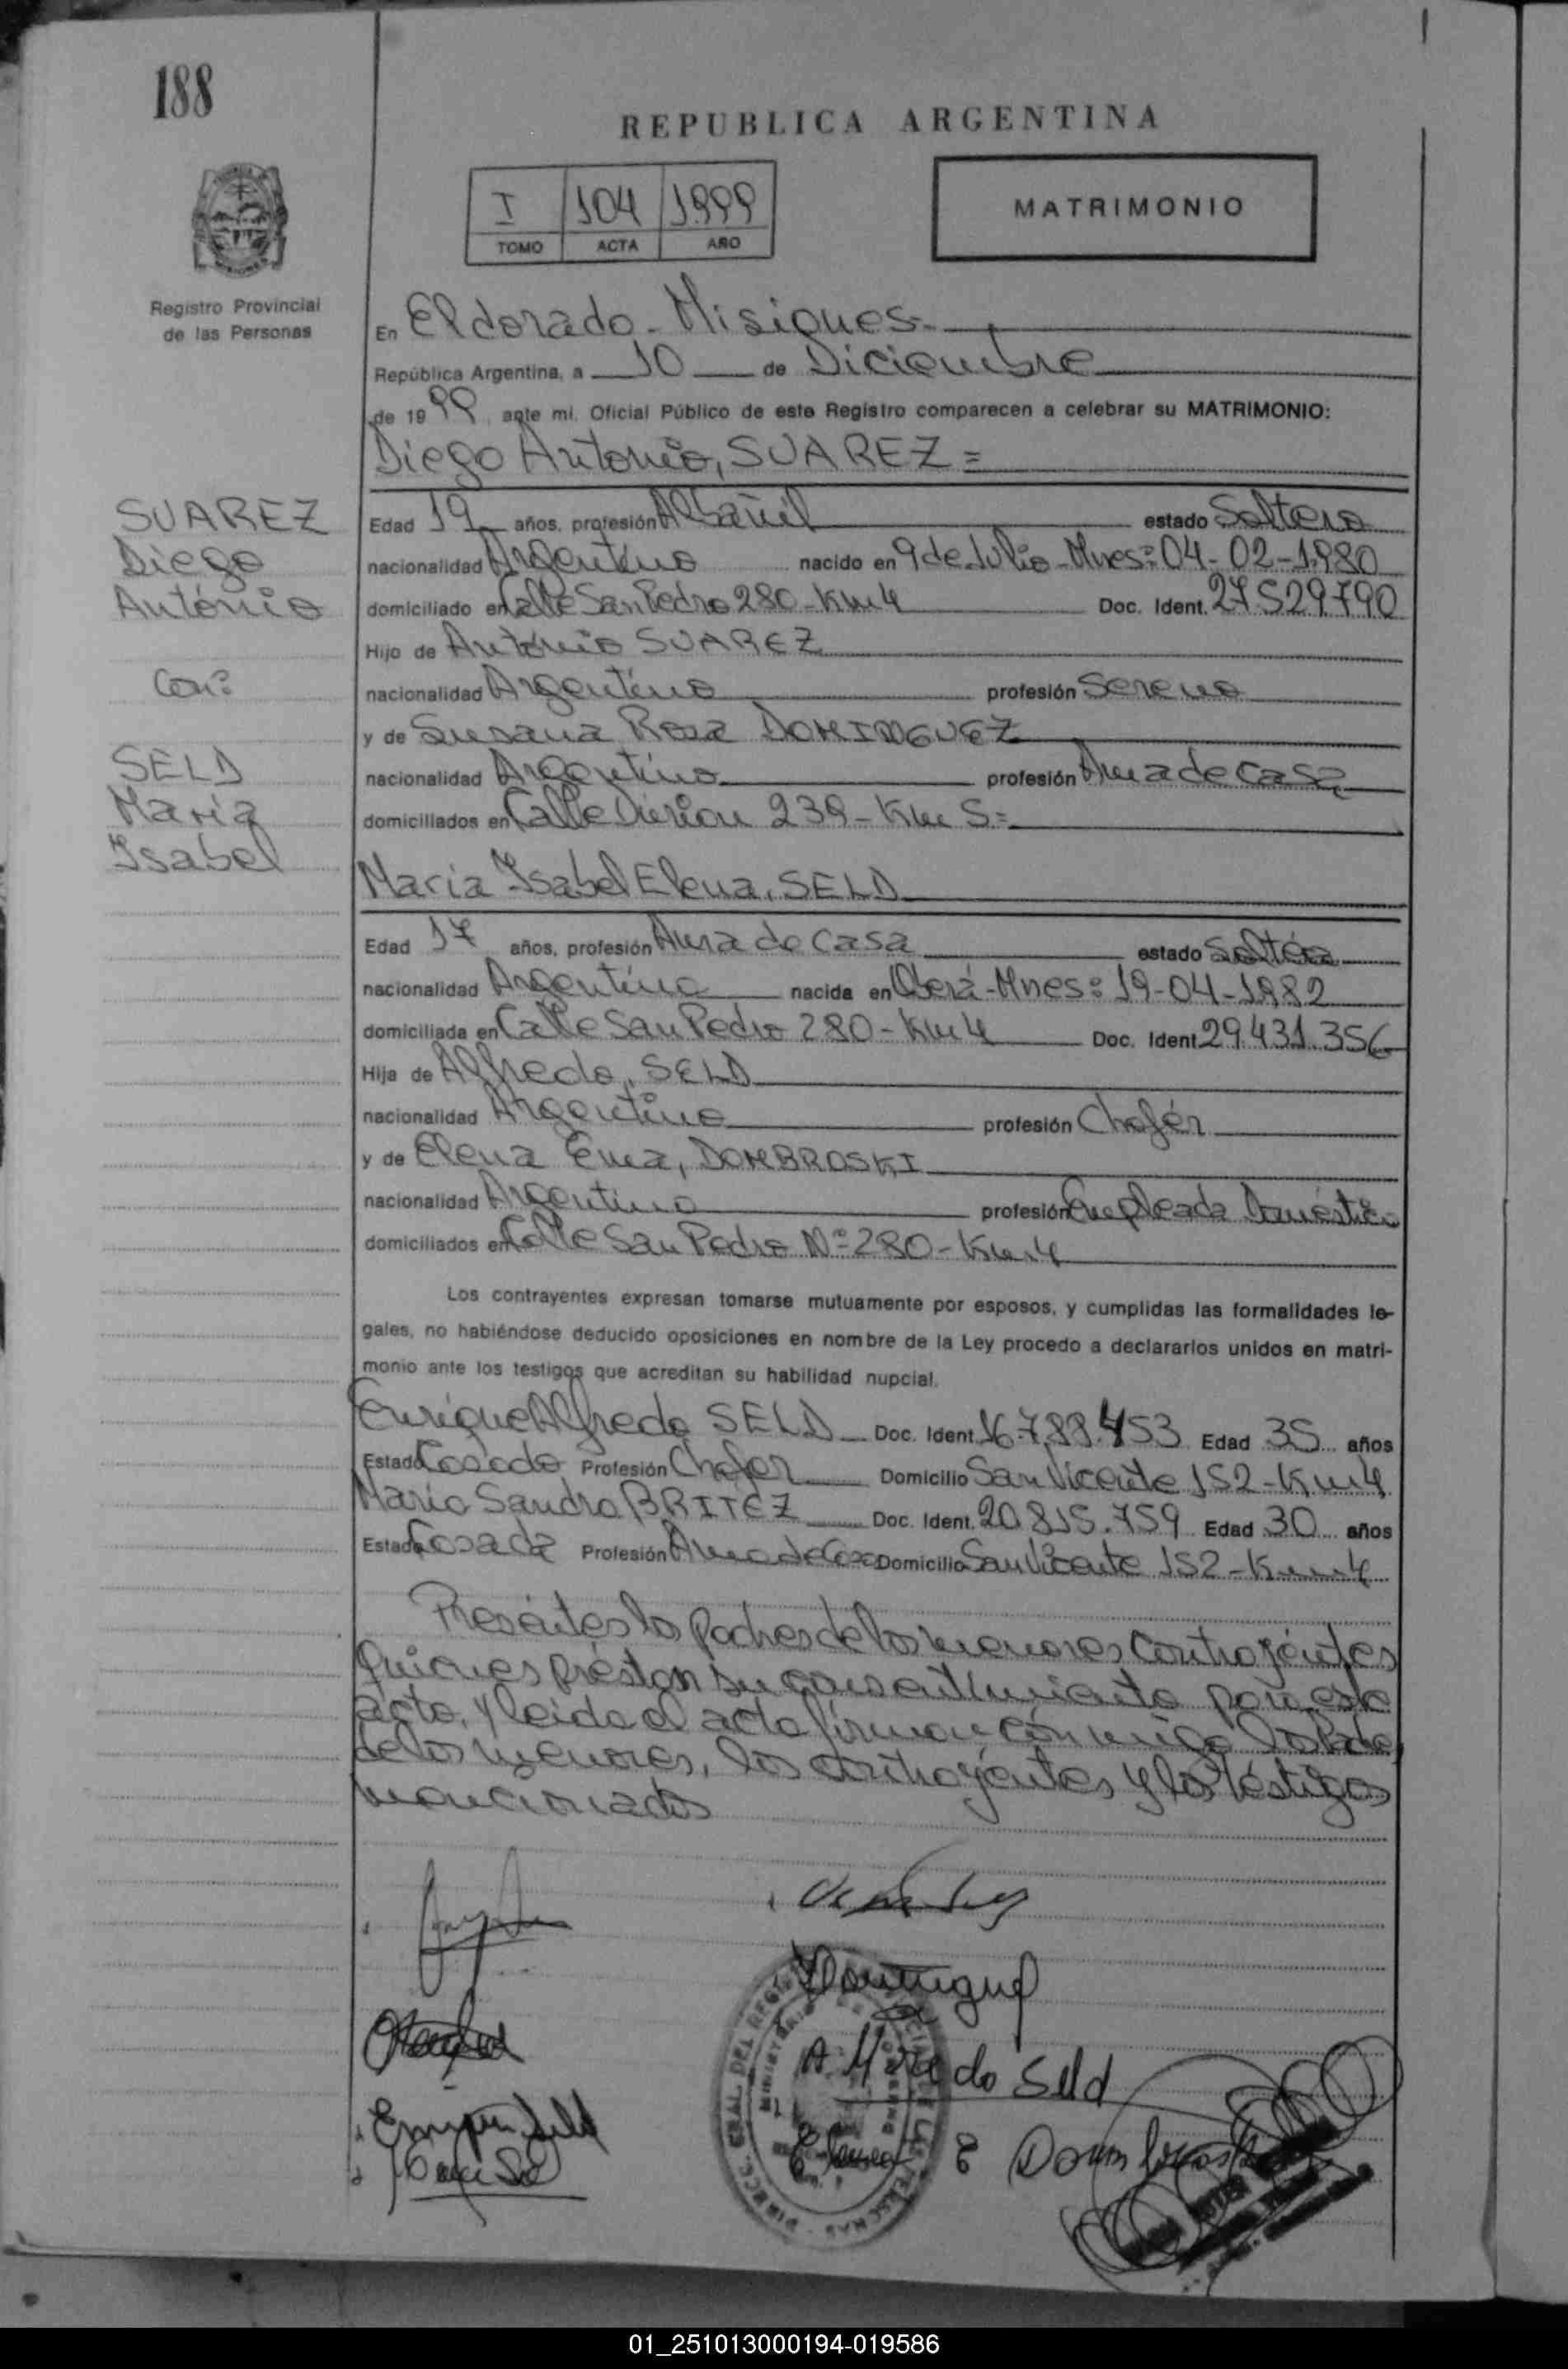 188
REPUBLICA ARGENTINA
I 104 1999
TOMO ACTA AÑO
MATRIMONIO
Registro Provincial
de las Personas
En Eldorado - Misiones=
República Argentina, a 10 de Diciembre
de 1999, ante mi, Oficial Público de este Registro comparecen a celebrar su MATRIMONIO:
Diego Antonio, SUAREZ =
SUAREZ
Diego
António
Con:
SELD
María
Isabel
Edad 19 años, profesión Albañil estado Soltero
nacionalidad Argentino nacido en 9 de Julio - Mnes: 04-02-1.980
domiciliado en Calle San Pedro 280 - Km 4 Doc. Ident. 27.529.790
Hijo de António SUAREZ
nacionalidad Argentino profesión Sereno
y de Susana Rosa DOMINGUEZ
nacionalidad Argentino profesión Ama de casa
domiciliados en Calle 239 - Km 5=
María Isabel Elena, SELD
Edad 17 años, profesión Ama de casa estado Soltera
nacionalidad Argentina nacida en Oberá - Mnes: 19-04-1.982
domiciliada en Calle San Pedro 280 - Km 4 Doc. Ident. 29.431.356
Hija de Alfredo, SELD
nacionalidad Argentino profesión Chofér
y de Elena Ema, DOMBROSKI
nacionalidad Argentino profesión Empleada Doméstica
domiciliados en Calle San Pedro Nº 280 - Km 4
Los contrayentes expresan tomarse mutuamente por esposos, y cumplidas las formalidades le-
gales, no habiéndose deducido oposiciones en nombre de la Ley procedo a declararlos unidos en matri-
monio ante los testigos que acreditan su habilidad nupcial.
Enrique Alfredo SELD Doc. Ident. 16.788.453 Edad 35 años
Estado Casado Profesión Chofer Domicilio San Vicente 152 - Km 4
Maria Sandra BRITEZ Doc. Ident. 20.815.759 Edad 30 años
Estado Casada Profesión Ama de Casa Domicilio San Vicente 152 - Km 4
Preséntes los padres de los menores contrayéntes
quienes préstan su consentimiento para este
acto, y leida el acta firman cón migo los Padres
de los menores, los contrayéntes, y los téstigos
mencionados
Dominguez
Alfredo Seld
Elena E Dombroski
01_251013000194-019586